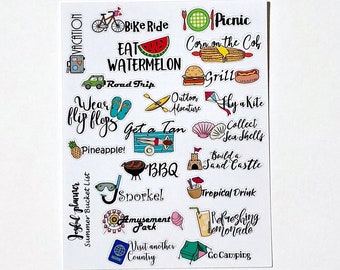 VACATION
Bike Ride
Picnic
EAT
WATERMELON
Corn on the Cob
Road Trip
Grill
Wear
flip flops
Outdoor
Adventure
Fly a Kite
Get a Tan
Collect
Sea Shells
Pineapple!
BBQ
Build a
Sand Castle
Snorkel
Tropical Drink
Joyful planner
Summer Bucket List
Amusement
Park
Refreshing
Lemonade
Visit another
Country
Go Camping